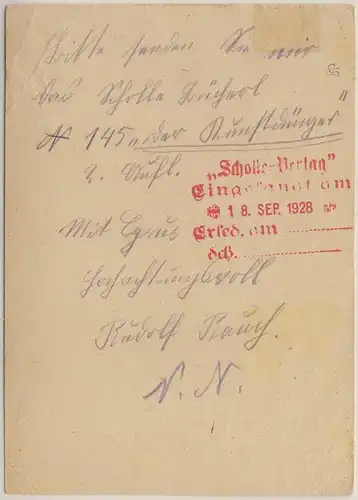 Bitte senden Sie mir
das Scholle Bücherl
№ 145 „Der Kunstdünger"
2. Aufl.
„Scholle-Verlag"
Eingelangt am
18. SEP. 1928
Erled. am
dch.
Mit Gruß
Hochachtungsvoll
Rudolf Rauch.
N. N.